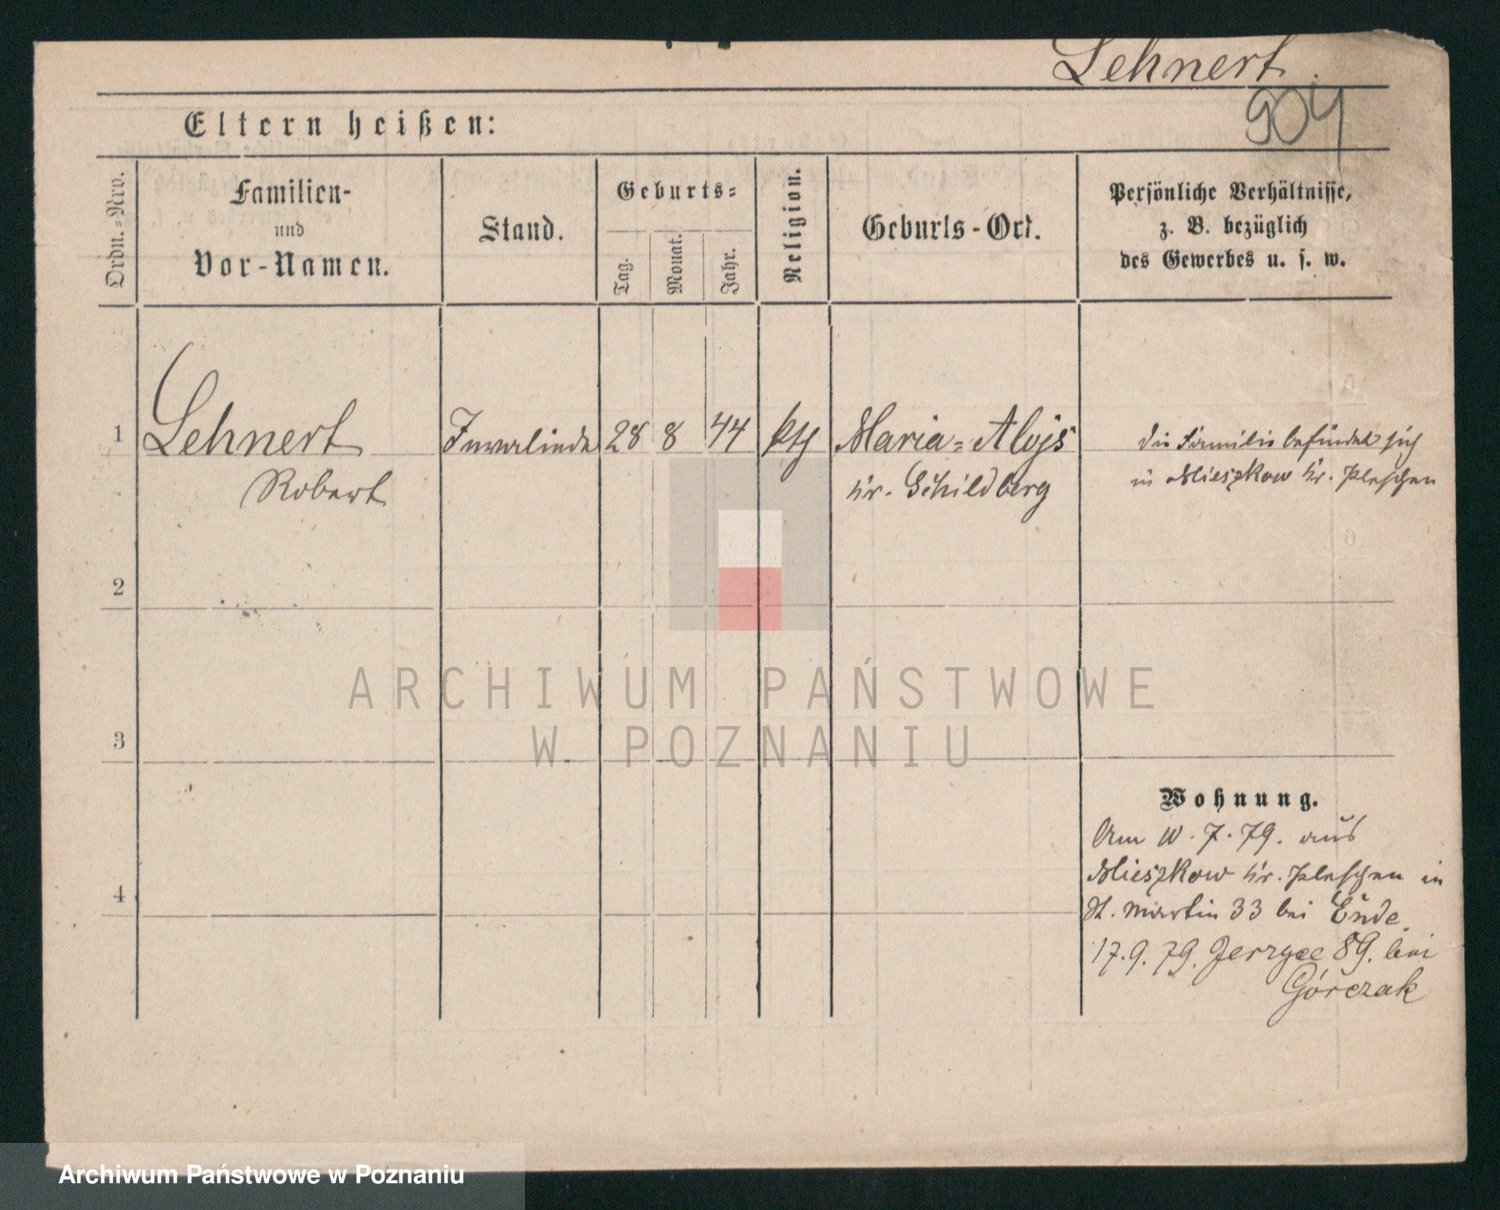 Lehnert
904
Eltern heißen:
Ordn.-Nro.
Familien-
und
Vor-Namen.
Stand.
Geburts-
Tag.
Monat.
Jahr.
Religion.
Geburts-Ort.
Persönliche Verhältnisse,
z. B. bezüglich
des Gewerbes u. s. w.
1 Lehnert 28 8 44 kth Maria-Alojs die Familie befindet sich
Robert Kr. Schildberg in Mieszkow Kr. Pleschen
2
3
4
Wohnung.
Am 10.7.79. aus
Mieszkow Kr. Pleschen in
St. Martin 33 bei Ende.
17.9.79. Jerzyce 89. bei
Górczak
ARCHIWUM PAŃSTWOWE
W POZNANIU
Archiwum Państwowe w Poznaniu